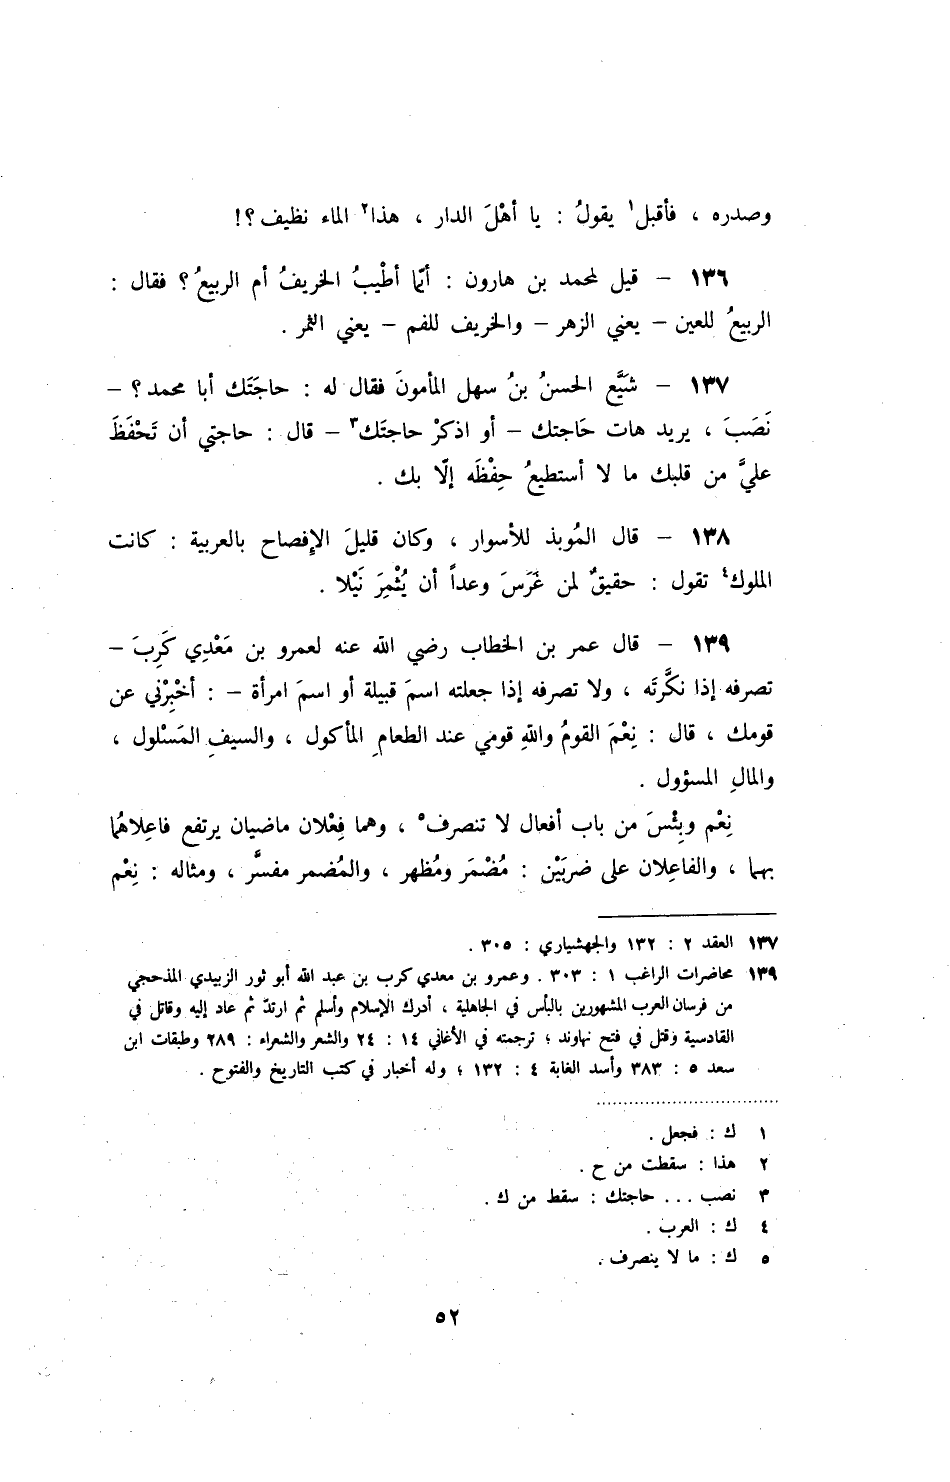 وصدره ، فأقبل١ يقولُ : يا أهْلَ الدار ، هذا٢ الماء نظيف ؟!
١٣٦ – قيل لمحمد بن هارون : أيّما أطْيبُ الخريفُ أم الربيعُ ؟ فقال :
الربيعُ للعين – يعني الزهر – والخريف للفم – يعني الثمر .
١٣٧ – شَيَّع الحسنُ بنُ سهل المأمونَ فقال له : حاجَتَك أبا محمد ؟ –
نَصَبَ ، يريد هات حَاجتك – أو اذكرْ حاجتَك٣ – قال : حاجتي أن تَحْفَظَ
عليَّ من قلبك ما لا أستطيعُ حِفْظَه إلّا بك .
١٣٨ – قال المُوبذ للأسوار ، وكان قليلَ الإفصاح بالعربية : كانت
الملوك٤ تقول : حقيقٌ لمن غَرَسَ وعداً أن يُثْمِرَ نَيْلا .
١٣٩ – قال عمر بن الخطاب رضي الله عنه لعمرو بن مَعْدِي كَرِبَ –
تصرفه إذا نكَّرتَه ، ولا تصرفه إذا جعلته اسمَ قبيلة أو اسمَ امرأة – : أخْبِرْني عن
قومك ، قال : نِعْمَ القومُ واللهِ قومي عند الطعامِ المأكول ، والسيفِ المَسْلول ،
والمالِ المسؤول .
نِعْم وبِئْسَ من باب أفعال لا تنصرف٥ ، وهما فِعْلان ماضيان يرتفع فاعلاهُما
بهما ، والفاعِلان على ضربَيْن : مُضْمَر ومُظهر ، والمُضمر مفسَّر ، ومثاله : نِعْم
١٣٧ العقد ٢ : ١٣٢ والجهشياري : ٣٠٥ .
١٣٩ محاضرات الراغب ١ : ٣٠٣ . وعمرو بن معدي كرب بن عبد الله أبو ثور الزبيدي المذحجي
من فرسان العرب المشهورين بالبأس في الجاهلية ، أدرك الإسلام وأسلم ثم ارتدّ ثم عاد إليه وقاتل في
القادسية وقتل في فتح نهاوند ؛ ترجمته في الأغاني ١٤ : ٢٤ والشعر والشعراء : ٢٨٩ وطبقات ابن
سعد ٥ : ٣٨٣ وأسد الغابة ٤ : ١٣٢ ؛ وله أخبار في كتب التاريخ والفتوح .
١ ك : فجعل .
٢ هذا : سقطت من ح .
٣ نصب ... حاجتك : سقط من ك .
٤ ك : العرب .
٥ ك : ما لا ينصرف .
٥٢